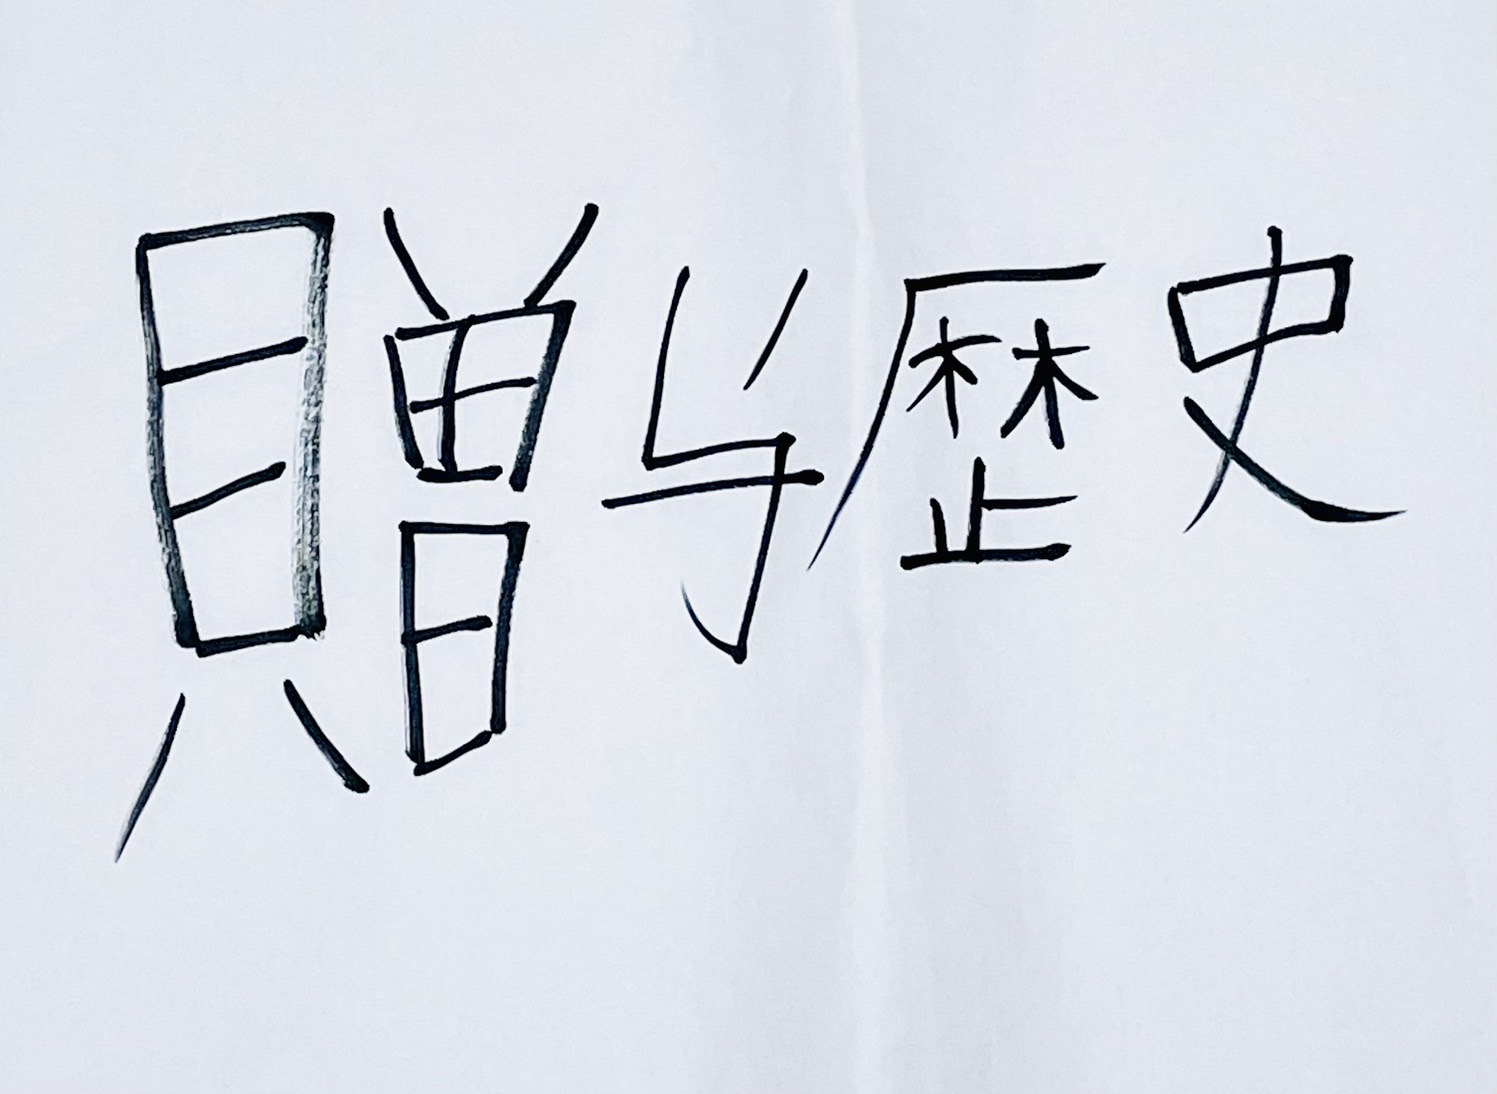 贈与歴史